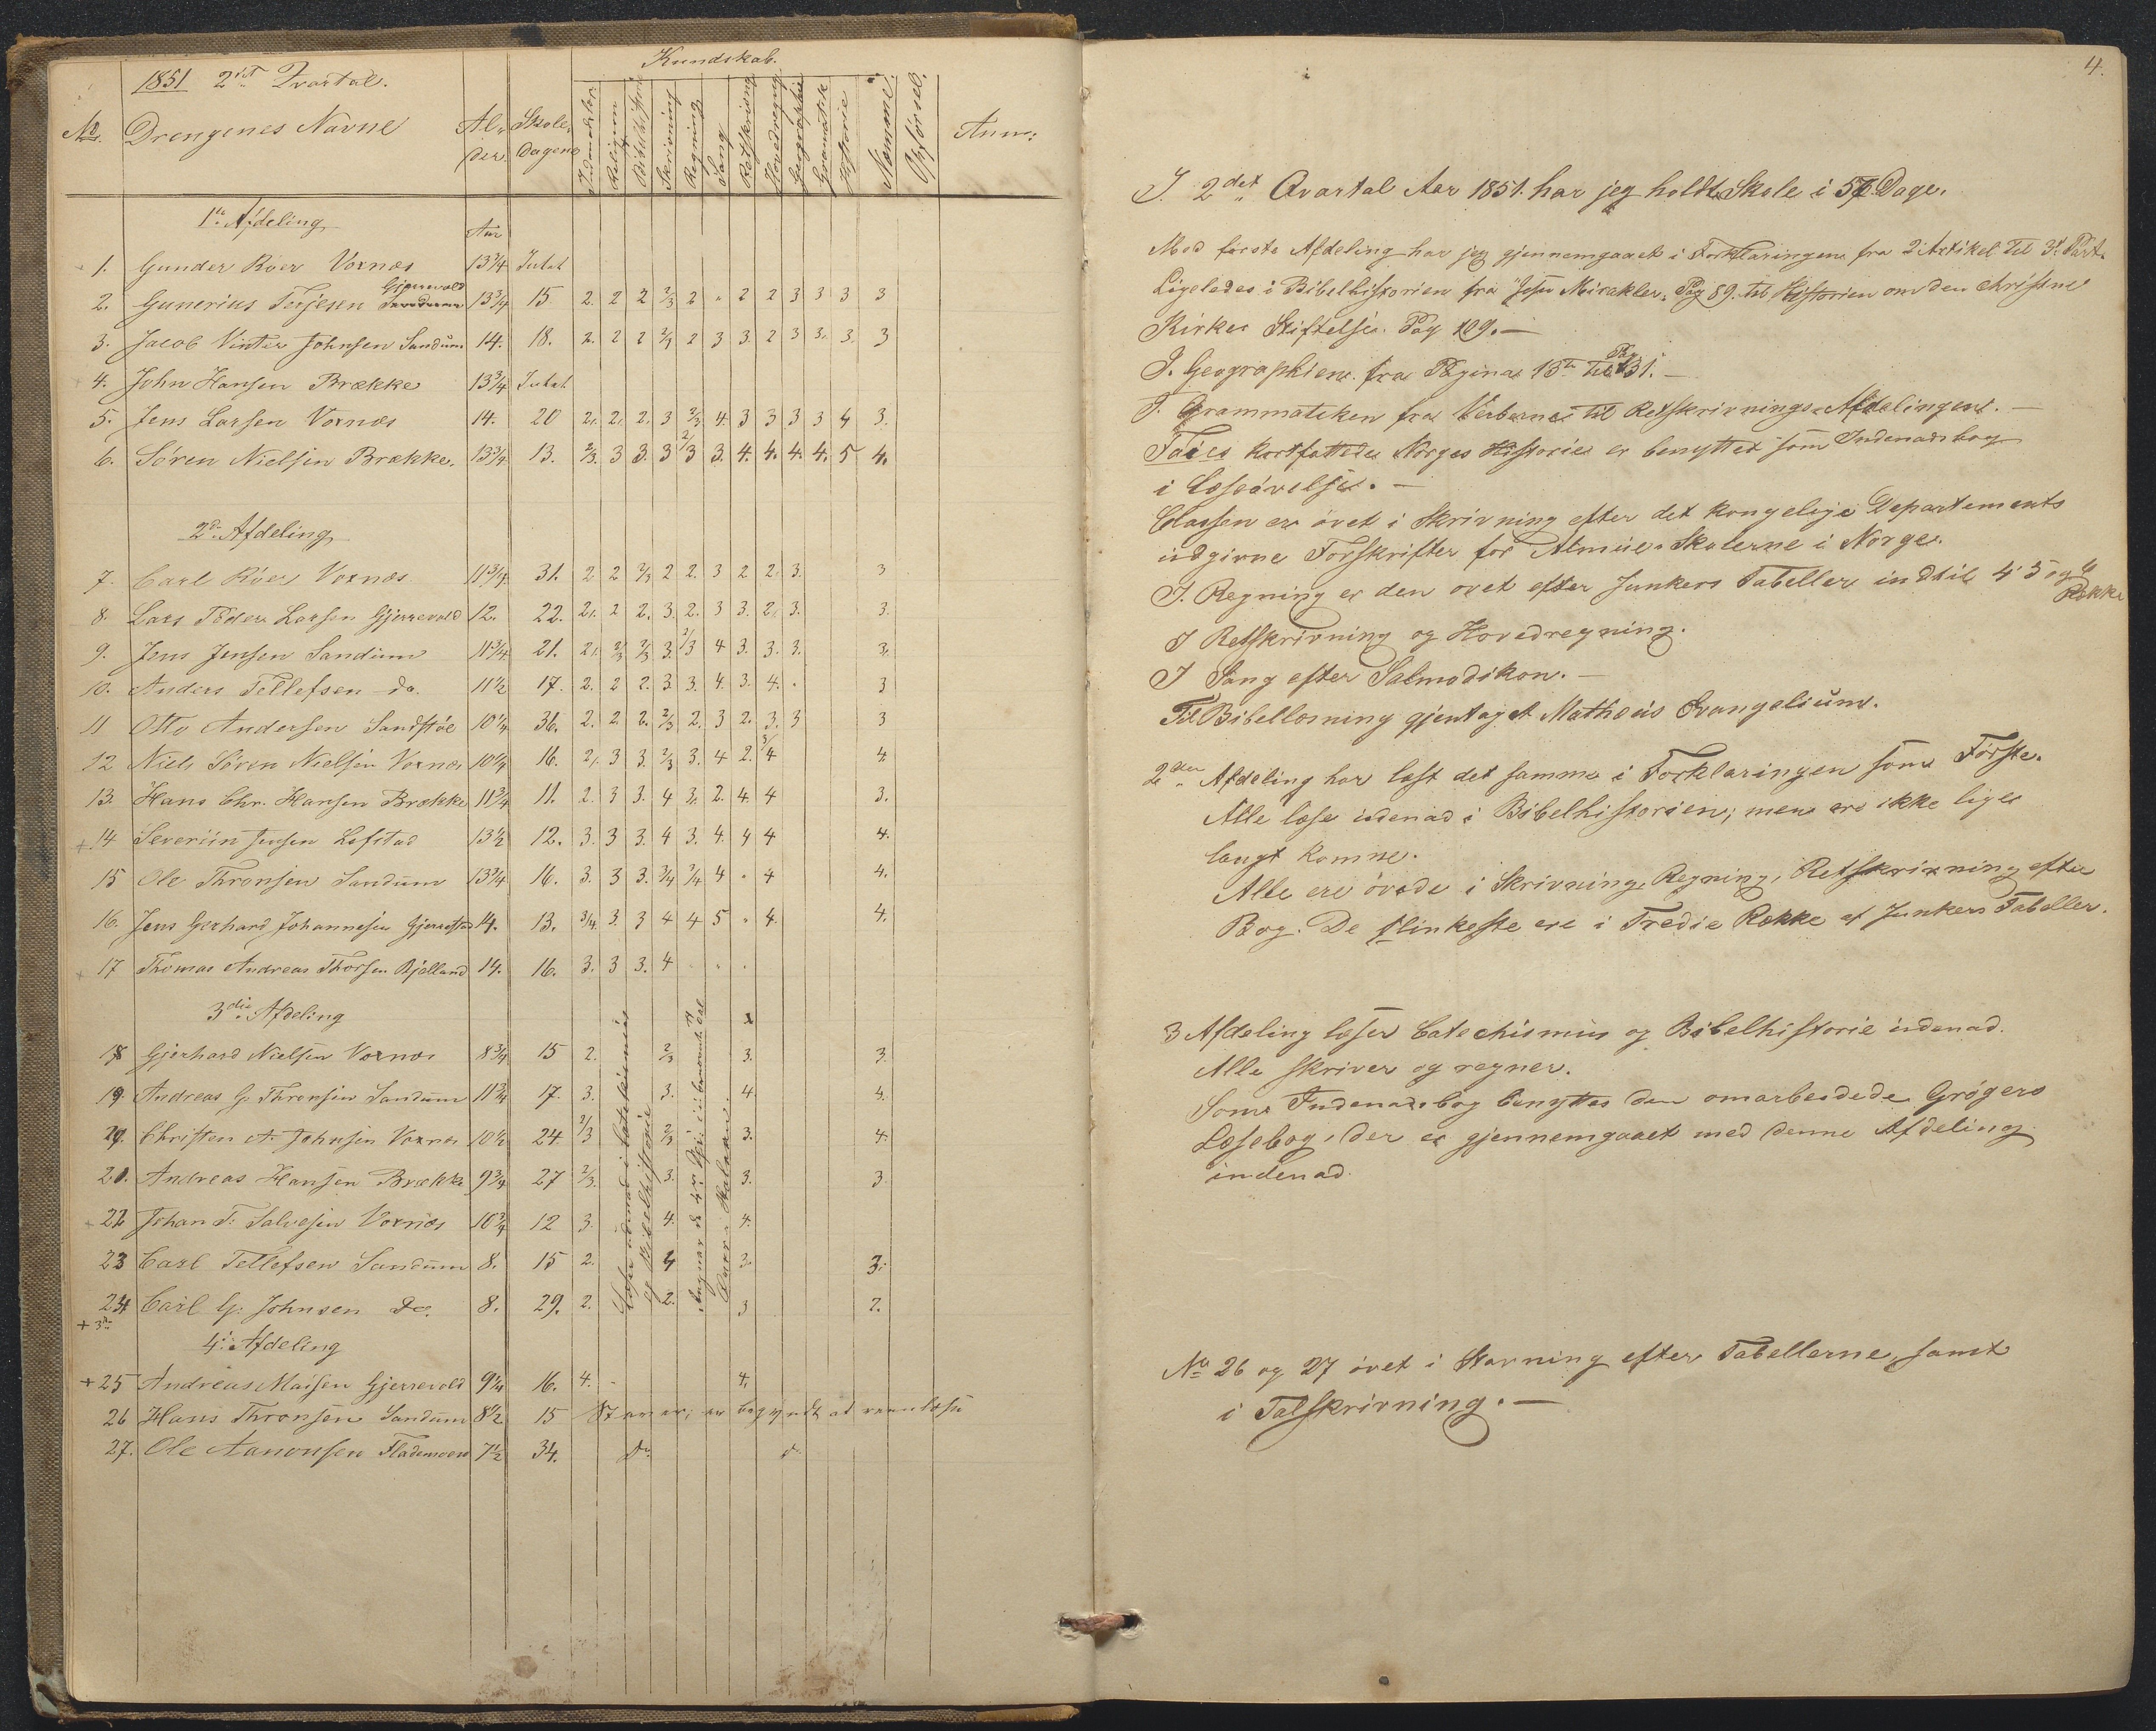 1851 2det Qvartal.
Kundskab.
No. Drengenes Navne Al-der. Skole-Dagene Indenadslæs. Religion Bibelhistorie Skrivning Regning Sang Retskrivning Hovedregng Geographie Gramatik Historie Nemme Opførsel. Anm:
1te Afdeling Aar
1. Gunder Röer Voxnæs 13 3/4 Intet
Gjerrevold
2. Gunerius Terjesen 13 3/4 15 2. 2 2 2/3 2 " 2 2 3 3 3 3
3. Jacob Vinter Johnsen Sandum 14. 18. 2. 2 2 2/3 2 3 3. 2 3 3. 3. 3
4. John Hansen Brække 13 3/4 Intet
5. Jens Larsen Voxnæs 14. 20 2. 2. 2. 3 2/3 4. 3 3 3 3 4 3.
6. Sören Nielsen Brække. 13 3/4 13. 2/3. 3 3. 3 2/3 3. 4. 4. 4. 4. 5 4.
2d. Afdeling
7. Carl Röer Voxnæs 11 3/4 31. 2 2 2/3 2 2. 3 2 2. 3. 3
8. Lars Peder Larsen Gjerrevold 12. 22. 2. 2 2. 3. 2. 3 3. 2. 3. 3.
9. Jens Jensen Sandum 11 3/4 21. 2. 2/3 2/3 3. 2/3 4 3. 3. 3. 3.
10. Anders Tellefsen do. 11 1/2 17. 2. 2 2. 3. 3. 4. 3. 4. . 3
11 Otto Andersen Sandstöl 10 1/4 36. 2. 2. 2. 2/3 2. 3 2. 3. 3 3
12 Niels Sören Nielsen Voxnæs 10 1/4 16. 2. 3 3. 2/3 3. 4 2. 3/4 4.
13. Hans Chr. Hansen Brække 11 3/4 11. 2. 3 3. 4 3. 2. 4. 4 3.
+ 14 Severin Jensen Lofstad 13 1/2 12. 3. 3 3. 4 3. 4. 4 4 4.
15 Ole Thronsen Sandum 13 3/4 16. 3. 3 3. 3/4 3/4 4 " 4 4.
16. Jens Gerhard Johannesen Gjerrestad 14. 13. 3/4. 3. 3 4 4 5 " 4. 4.
+ 17 Thomas Andreas Thorsen Bjelland 14. 16. 3. 3 3. 4 . . .
3die Afdeling
18 Gjerhard Nielsen Voxnæs 8 3/4 15 2. 2/3 3. 3.
19. Andreas G. Thronsen Sandum 11 3/4 17. 3. 3. 4. 4.
20. Christen A. Johnsen Voxnæs 10 1/2 24. 2/3 2/3 3. 4.
21. Andreas Hansen Brække 9 3/4 27 2/3. 3. 3. 3.
+ 22 Johan T. Salvesen Voxnæs 10 3/4 12 3. 4. 4.
23 Carl Tellefsen Sandum 8. 15 2. 4 3. 3.
24 Carl G. Johnsen Do. 8. 29. 2. 2. 3 2.
Læser udenad i Catekismus
og Bibelhistorie
4. Afdeling
+ 25 Andreas Maisen Gjerrevold 9 1/4 16. 4. 4.
26 Hans Thronsen Sandum 8 1/2 15 Staver; er begyndt at reenlæse
27. Ole Aanonsen Flademoen 7 1/2 34. do. do
4.
I. 2det Qvartal Aar 1851. har jeg holdt Skole i 57 Dage.
Med første Afdeling har jeg gjennemgaaet i Forklaringen fra 2 Artikel til 3d. Part.
Ligeledes i Bibelhistorien fra Jesu Mirakler. Pag 89. til Historien om den christne
Kirkes Stiftelse. Pag 109.—
I. Geographien. fra Pagina 13te til Pag 31.—
I. Grammatiken fra Verberne til Retskrivnings-Afdelingen.—
Faÿes kortfattede Norges Historie er benyttet som Indenadsbog
i Læseøvelse.—
Classen er øvet i Skrivning efter det kongelige Departements
udgivne Forskrifter for Almue-Skolerne i Norge.
I. Regning er den øvet efter Junkers Tabeller indtil 4 5 og 6 Række
I Retskrivning og Hovedregning.
I Sang efter Salmodikon.—
Til Bibellæsning gjentaget Mathæus Evangelium.
2den Afdeling har læst det samme i Forklaringen som Første.
Alle læse udenad i Bibelhistorien; men ere ikke lige
langt komne.
Alle ere øvede i Skrivning, Regning, Retskrivning efter
Bog. De flinkeste ere i Tredie Række af Junkers Tabeller.
3 Afdeling læser Catechismus og Bibelhistorie udenad.
Alle skriver og regner.
Som Indenadsbog benyttes den omarbeidede Grøgers
Læsebog, der er gjennemgaaet med denne Afdeling
indenad.
No 26 og 27 øvet i Stavning efter Tabellerne, samt
i Talskrivning.—